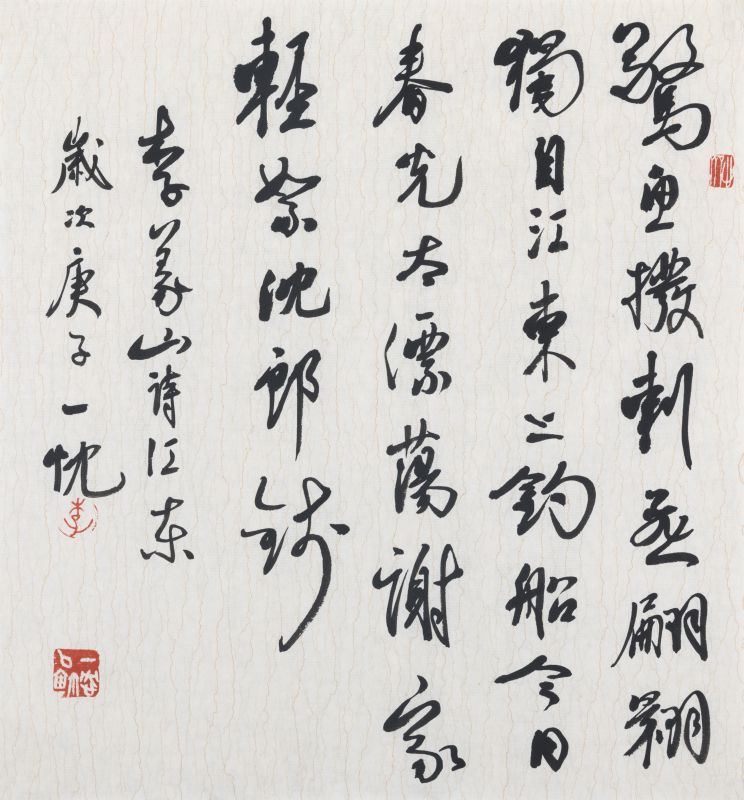 驚魚撥剌燕翩翾
獨自江東上釣船今日
春光太漂蕩謝家
輕絮沈郎錢
李義山詩江東
歲次庚子一忱
李